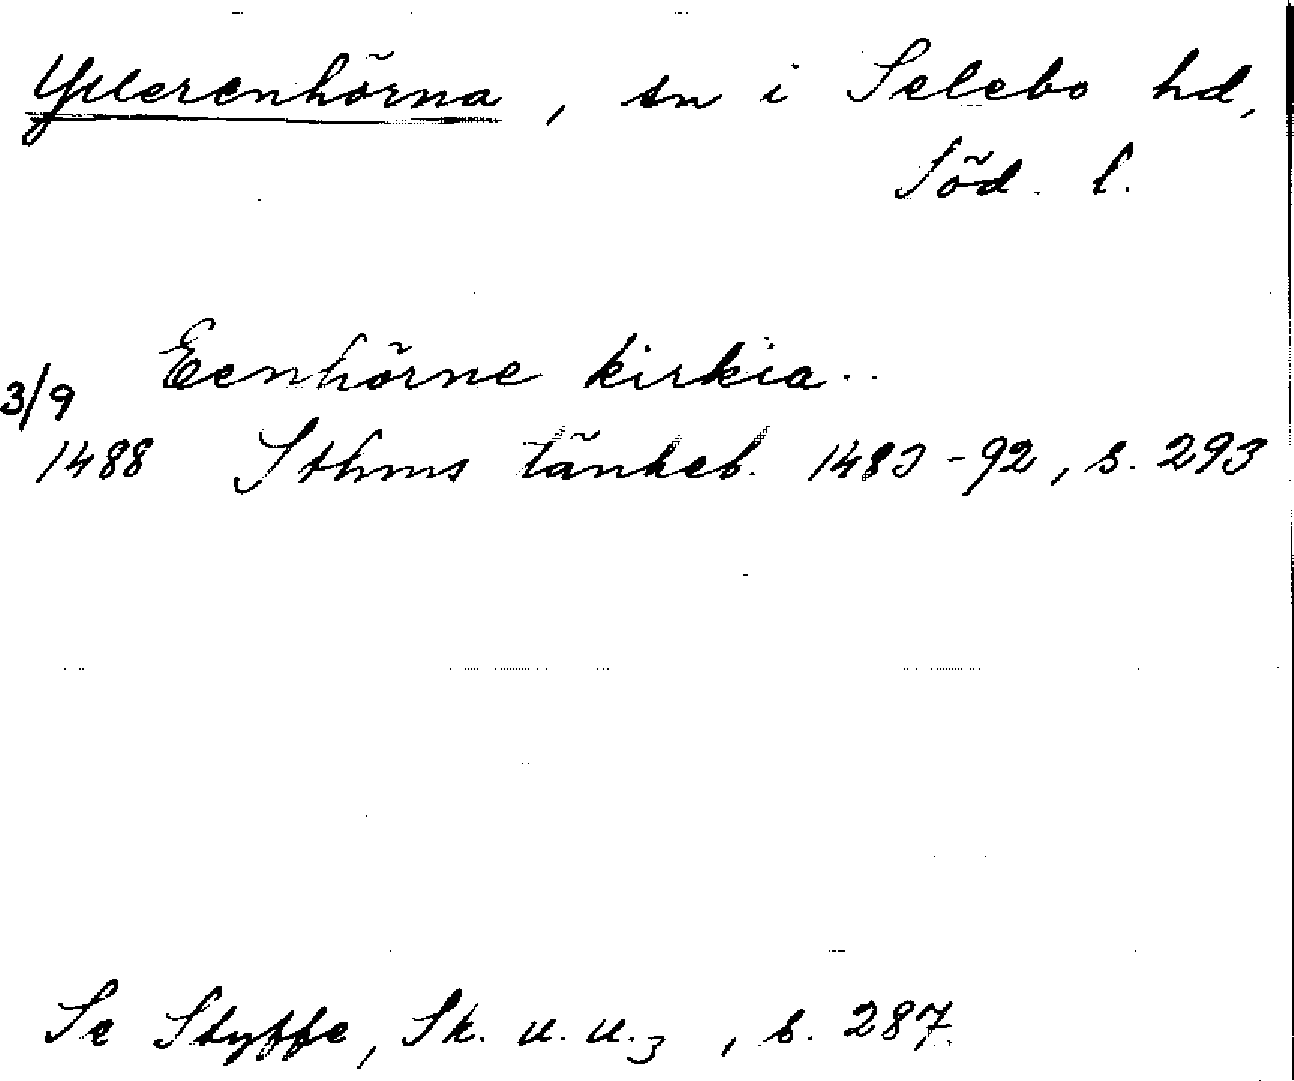 Ytterenhörna, sn i Selebo hd,
Söd. l.
Eenhörne kirkia..
3/9
1488 Sthms tänkeb. 1483-92, s. 293
Se Styffe, Sk. u. u. 3, s. 287.